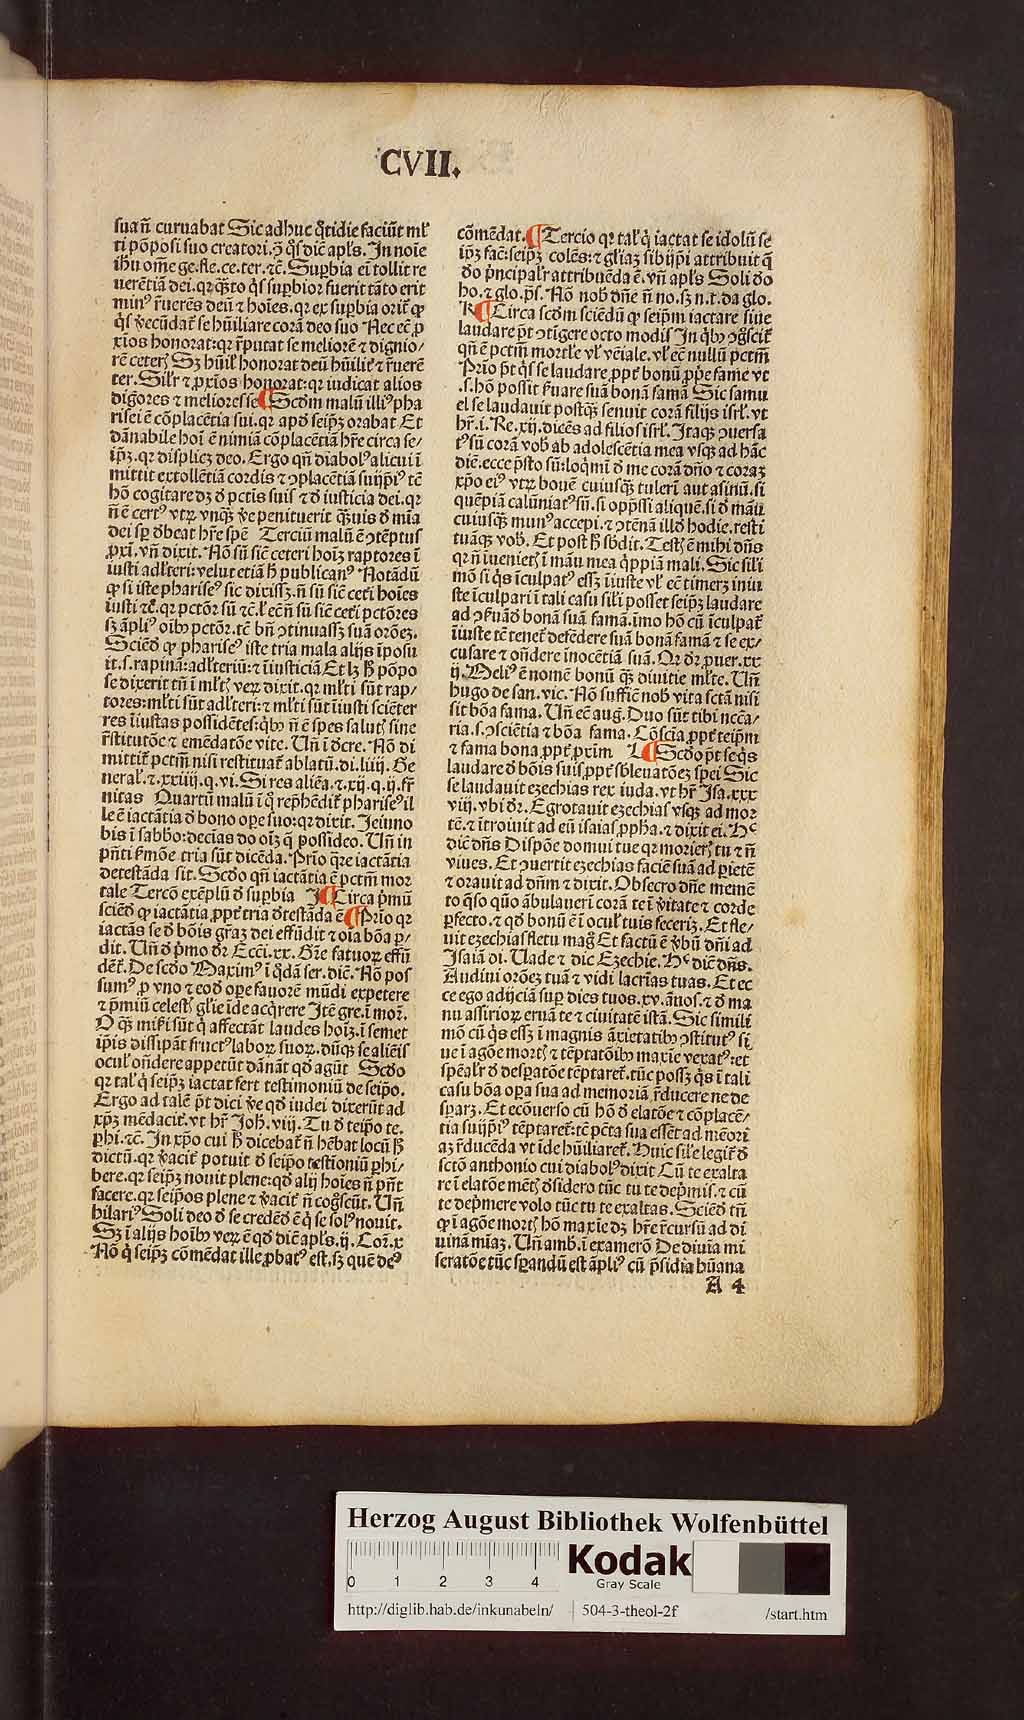 CVII.
sua ñ curuabat Sic adhuc q̃tidie faciũt ml̃
ti põposi suo creatori. ꝯ̃ q̃s dic̃ apl̃s. In noĩe
ih̃u om̃e ge. fle. ce. ter. ⁊c̃. Supbia ei tollit re
uerẽtiã dei. qꝛ q̃ʒto q̃s supbior fuerit tãto erit
minꝰ r̃uerẽs deũ ⁊ hoĩes. qꝛ ex supbia orit̃ ꝙ
q̃s v̾ecũdat̃ se hũiliare corã deo suo Nec ec̃ ꝓ
xios honorat: qꝛ r̃putat se meliorẽ ⁊ dignio/
rẽ ceterꝭ Sʒ hũil̃ honorat deũ hũilit̃ ⁊ r̃uerẽ
ter. Sil̃r ⁊ ꝓxios honorat: qꝛ iudicat alios
digores ⁊ meliores se ¶ Scd̃m malũ illiꝰ pha
risei ẽ cõplacẽtia sui. qꝛ apd̃ seip̃ʒ orabat Et
dãnabile hoĩ ẽ nimiã cõplacẽtiã hr̃e circa se/
ip̃ʒ. qꝛ displicʒ deo. Ergo qñ diabolꝰ alicui ĩ
mittit extollẽtiã cordis ⁊ ꝯplacẽtiã suijpiꝰ tẽ
hõ cogitare dʒ ð pctis suis ⁊ ð iusticia dei. qꝛ
ñ ẽ certꝰ vtꝝ vnq̃ʒ v̾e penituerit q̃ʒuis ð mĩa
dei sp̃ ðbeat hr̃e spẽ Terciũ malũ ẽ ꝯtẽptus
ꝓxĩ. vñ dixit. Nõ sũ sic̃ ceteri hoĩʒ raptores ĩ
iusti adl̃teri: velut etiã h̃ publicanꝰ Notãdũ
ꝙ si iste phariseꝰ sic dixissʒ. ñ sũ sic̃ cet̃i hoĩes
iusti ⁊c̃. qꝛ pctõr sũ ⁊c̃. l̃ ec̃ ñ sũ sic̃ cet̃i pctõres
sʒ ãpliꝰ oĩbꝰ pctõr. tẽ bñ ꝯtinuassʒ suã orõeʒ.
Sciẽd̃ ꝙ phariseꝰ iste tria mala alijs ĩposu
it. s. rapinã: adl̃teriũ: ⁊ ĩiusticiã Et lʒ h̃ põpo
se dixerit tñ ĩ ml̃tꝭ veꝝ dixit. qꝛ ml̃ti sũt rap/
tores: ml̃ti sũt adl̃teri: ⁊ ml̃ti sũt ĩiusti sciẽter
res ĩiustas possidẽtes: q̃bꝰ ñ ẽ spes salutꝭ sine
r̃stitutõe ⁊ emẽdatõe vite. Uñ ĩ ðcre. Nõ di
mittit̃ pctm̃ nisi restituat̃ ablatũ. di. liiij. Ge
neral̃. ⁊. xxiiij. q. vi. Si res aliẽa. ⁊. xij. q. ij. fr̃
nitas Quartũ malũ ĩ q̃ rep̃hẽdit̃ phariseꝰ il
le ẽ iactãtia ð bono ope suo: qꝛ dixit. Ieiuno
bis ĩ sabb̃o: decĩas do oĩʒ q̃ possideo. Uñ in
pñti f̃mõe tria sũt dicẽda. Prio q̃re iactãtia
detestãda sit. Scd̃o qñ iactãtia ẽ pctm̃ mor
tale Tercõ exẽplũ ð supbia ¶ Circa p̃mũ
sciẽd̃ ꝙ iactãtia, ꝓpt̃ tria ðtestãda ẽ ¶ Prio qꝛ
iactãs se ð bõis graʒ dei effũdit ⁊ oĩa bõa p̲/
dit. Uñ ð p̃mo dr̃ Ecci. xx. Gr̃e fatuoꝝ effũ
dẽt̃. De scd̃o Maximꝰ ĩ q̃dã ser. dic̃. Nõ pos
sumꝰ ꝓ vno ⁊ eod̃ ope fauorẽ mũdi expetere
⁊ p̃miũ celestꝭ gl̃ie ĩde acq̃rere Itẽ gre. ĩ moꝛ̃.
O q̃ʒ mir̃i sũt q̃ affectãt laudes hoĩʒ. ĩ semet
ip̃is dissipãt fructꝰ laboꝝ suoꝝ. dũq̃ʒ se aliẽis
ocul̃ on̄dere appetũt dãnãt qd̃ agũt Scd̃o
qꝛ tal̃ q̃ seip̃ʒ iactat fert testimoniũ de seip̃o.
Ergo ad talẽ p̃t dici v̾e qd̃ iudei dixerũt ad
xp̃ʒ mẽdacit̃. vt hr̃ Joh̃. viij. Tu ð teip̃o te.
p̲hi. ⁊c̃. In xp̃o cui h̃ dicebat̃ ñ hẽbat locũ h̃
dictũ. qꝛ v̾acit̃ potuit ð seip̃o testioniũ p̲hi/
bere. qꝛ seip̃ʒ nouit plene: qd̃ alij hoĩes ñ p̃nt
facere. qꝛ seip̃os plene ⁊ v̾acit̃ ñ cog̃scũt. Uñ
hilariꝰ Soli deo ð se credẽd̃ ẽ q̃ se solꝰ nouit.
Sʒ ĩ alijs hoĩbꝰ veꝝ ẽ qd̃ dic̃ apl̃s. ij. Coꝛ̃. x
Nõ q̃ seip̃ʒ cõmẽdat ille, ꝓbatꝰ est, sʒ quẽ deꝰ
cõmẽdat. ¶ Tercio qꝛ tal̃ q̃ iactat se idolũ se
ip̃ʒ fac̃: seip̃ʒ colẽs: ⁊ gl̃iaʒ sibijpi attribuit q̃
ðo p̃ncipal̃r attribuẽda ẽ. vñ apl̃s Soli ðo
ho. ⁊ glo. p̃s. Nõ nob̃ dñe ñ no. sʒ n. t. da glo.
¶ Circa scd̃m sciẽdũ ꝙ seip̃m iactare siue
laudare p̃t ꝯtigere octo modis In q̃bꝰ ꝯg̃scit̃
qñ ẽ pctm̃ mortl̃e vl̃ veĩale. vl̃ ec̃ nullũ pctm̃
Prio p̃t q̃s se laudare, ꝓpt̃ bonũ ꝓp̃e fame vt
.s. hõ possit f̃uare suã bonã famã Sic samu
el se laudauit postq̃ʒ senuit corã filijs isrl̃. vt
hr̃. i. Re. xij. dicẽs ad filios isrl̃. Itaq̃ʒ ꝯuersa
tꝰ sũ corã vob̃ ab adolescẽtia mea vsq̃ʒ ad hãc
diẽ. ecce p̃sto sũ: loq̃mĩ ð me corã dño ⁊ coraʒ
xp̃o eiꝰ vtꝝ bouẽ cuiusq̃ʒ tulerĩ aut asinũ. si
quẽpiã calũniatꝰ sũ. si opp̃ssi aliquẽ. si ð mãu
cuiusq̃ʒ munꝰ accepi. ⁊ ꝯtẽnã illd̃ hodie. resti
tuãq̃ʒ vob̃. Et post h̃ sb̃dit. Testꝭ ẽ mihi dñs
qꝛ ñ ĩuenietꝭ ĩ mãu mea q̃ppiã mali. Sic sil̃i
mõ si q̃s ĩculpatꝰ essʒ ĩiuste vl̃ ec̃ timerʒ iniu
ste ĩculpari ĩ tali casu sil̃i posset seip̃ʒ laudare
ad ꝯẜuãd̃ bonã suã famã. imo hõ cũ ĩculpat̃
ĩiuste tẽ tenet̃ defẽdere suã bonã famã ⁊ se ex/
cusare ⁊ on̄dere ĩnocẽtiã suã. Qꝛ dr̃ ꝓuer. xx
ij. Meliꝰ ẽ nomẽ bonũ q̃ʒ diuitie ml̃te. Uñ
hugo de san. vic. Nõ suffic̃ nob̃ vita sctã nisi
sit bõa fama. Uñ ec̃ aug̃. Duo sũt tibi nccã/
ria. s. ꝯsciẽtia ⁊ bõa fama. Cõscĩa, ꝓpt̃ teip̃m
⁊ fama bona, ꝓpt̃ ꝓxim̃ ¶ Scd̃o p̃t se q̃s
laudare ð bõis suis, ꝓpt̃ sb̃leuatõeʒ spei Sic
se laudauit eʒechias rex iuda. vt hr̃ Isa. xxx
viij. vbi dr̃. Egrotauit eʒechias vsq̃ʒ ad mor
tẽ. ⁊ ĩtroiuit ad eũ isaias, ꝓpha. ⁊ dixit ei. Hᶜ
dic̃ dñs Dispõe domui tue qꝛ morierꝭ tu ⁊ ñ
viues. Et ꝯuertit eʒechias faciẽ suã ad parietẽ
⁊ orauit ad dñm ⁊ dixit. Obsecro dñe memẽ
to q̃so q̃uo ãbulauerĩ corã te ĩ v̾itate ⁊ corde
p̲fecto. ⁊ qd̃ bonũ ẽ ĩ ocul̃ tuis feceriʒ. Et fle/
uit eʒechias fletu mag̃ Et factũ ẽ v̾bũ dñi ad
Isaiã oĩ. Uade ⁊ dic Eʒechie. Hᶜ dic̃ dñs.
Audiui orõeʒ tuã ⁊ vidi lacrĩas tuas. Et ec
ce ego adijciã sup dies tuos. xv. ãnos. ⁊ ð ma
nu assirioꝝ eruã te ⁊ ciuitatẽ istã. Sic simili
mõ cũ q̃s essʒ ĩ magnis ãxietatibꝰ ꝯstitutꝰ si
ue ĩ agõe mortꝭ ⁊ tẽptatõibꝰ maxie vexatꝰ: et
spẽal̃r ð desp̲atõe tẽptaret̃. tũc possʒ q̃s ĩ tali
casu bõa opa sua ad memoriã r̃ducere ne de
sp̲arʒ. Et ecõuerso cũ hõ ð elatõe ⁊ cõplacẽ/
tia suijpiꝰ tẽptaret̃. tẽ pc̃ta sua essẽt ad mẽori
aʒ r̃ducẽda vt ĩde hũiliaret̃. Huic sil̃e legit̃ ð
sctõ anthonio cui diabolꝰ dixit Cũ te exalta
re ĩ elatõe mẽtꝭ ðsidero tũc tu te dep̃mis. ⁊ cũ
te dep̃mere volo tũc tu te exaltas. Sciẽd̃ tñ
ꝙ ĩ agõe mortꝭ hõ maxie dʒ hr̃e r̃cursũ ad di
uinã mĩaʒ. Uñ amb. ĩ examerõ De diuia mi
seratõe tũc sp̲andũ est ãpliꝰ cũ p̃sidia hũana
A 4
Herzog August Bibliothek Wolfenbüttel
0 1 2 3 4
Kodak
Gray Scale
http://diglib.hab.de/inkunabeln/ 504-3-theol-2f /start.htm